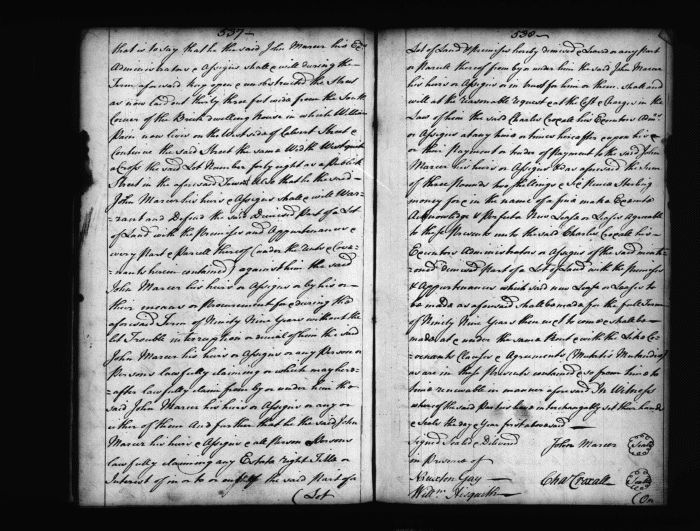 537
that is to say that he the said John Mercer his Exrs
Administrators & Assigns shall & will during the
Term aforesaid keep open & unobstructed the Street
as now laid out thirty three foot wide from the South
Corner of the Brick dwelling House in which William
Pain now lives on the West side of Calvert Street &
Continue the said Street the same Width West quite
a Cross the said Lot Number forty eight as a Publick
Street in the aforesaid Town also that he the said
John Mercer his heirs & Assigns shall & will War-
-rant and Defend the said Demised Part of a Lot
of Land with the Premises and Appurtenances &
every Part & Parcell thereof (under the Rents & Cove-
-nants herein contained) against him the said
John Mercer his heirs or Assigns or by his or
their means or Procurement for & during the
aforesaid Term of Ninety Nine Years without the
let Trouble interruption or denial of him the said
John Mercer his heirs or Assigns or any Person or
Persons lawfully claiming or which may here-
-after lawfully claim from by or under him the
said John Mercer his heirs or Assigns or any or
either of them And further that he the said John
Mercer his heirs & Assigns & all Person Persons
lawfully claiming any Estate right Title or
Interest of in or to the said Part of a
(Lot
538
Lot of Land & Premises hereby demised & Leased or any Part
or Parcell thereof from by or under him the said John Mercer
his heirs or Assigns or in trust for him or them shall and
will at the reasonable request & at the Cost & Charges in the
Law of him the said Charles Croxall his Executors Admrs
or Assigns at any time or times hereafter upon his
or their Payment or tender of Payment to the said John
Mercer his heirs or Assigns as aforesaid the Sum
of three Pounds Six Shillings & Six Pence Sterling
money for & in the name of a fine make Execute
Acknowledge & Perfect a New Lease or Leases Agreeable
to these Presents unto the said Charles Croxall his
Executors Administrators or Assigns of the said menti-
-oned demised Part of a Lot of Land with the Premises
& Appurtenances which said new Lease or Leases to
be made as aforesaid shall be made for the full Term
of Ninety Nine Years then next to come & shall be
made at & under the same Rent & with the Like Co-
-venants Clauses & Agreements Mutatis Mutandis
as are in these Presents contained & so from time to
time renewable in manner aforesaid In Witness
whereof the said Parties have interchangeably set their hands
& Seals the day & Year first above said
Signed Sealed & Delivered John Mercer (Seal)
in Presence of
Gay Chas Croxall (Seal)
Willm Asquith (On